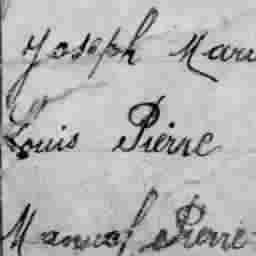 Joseph Mari
Louis Pierre
Manuel Pierre